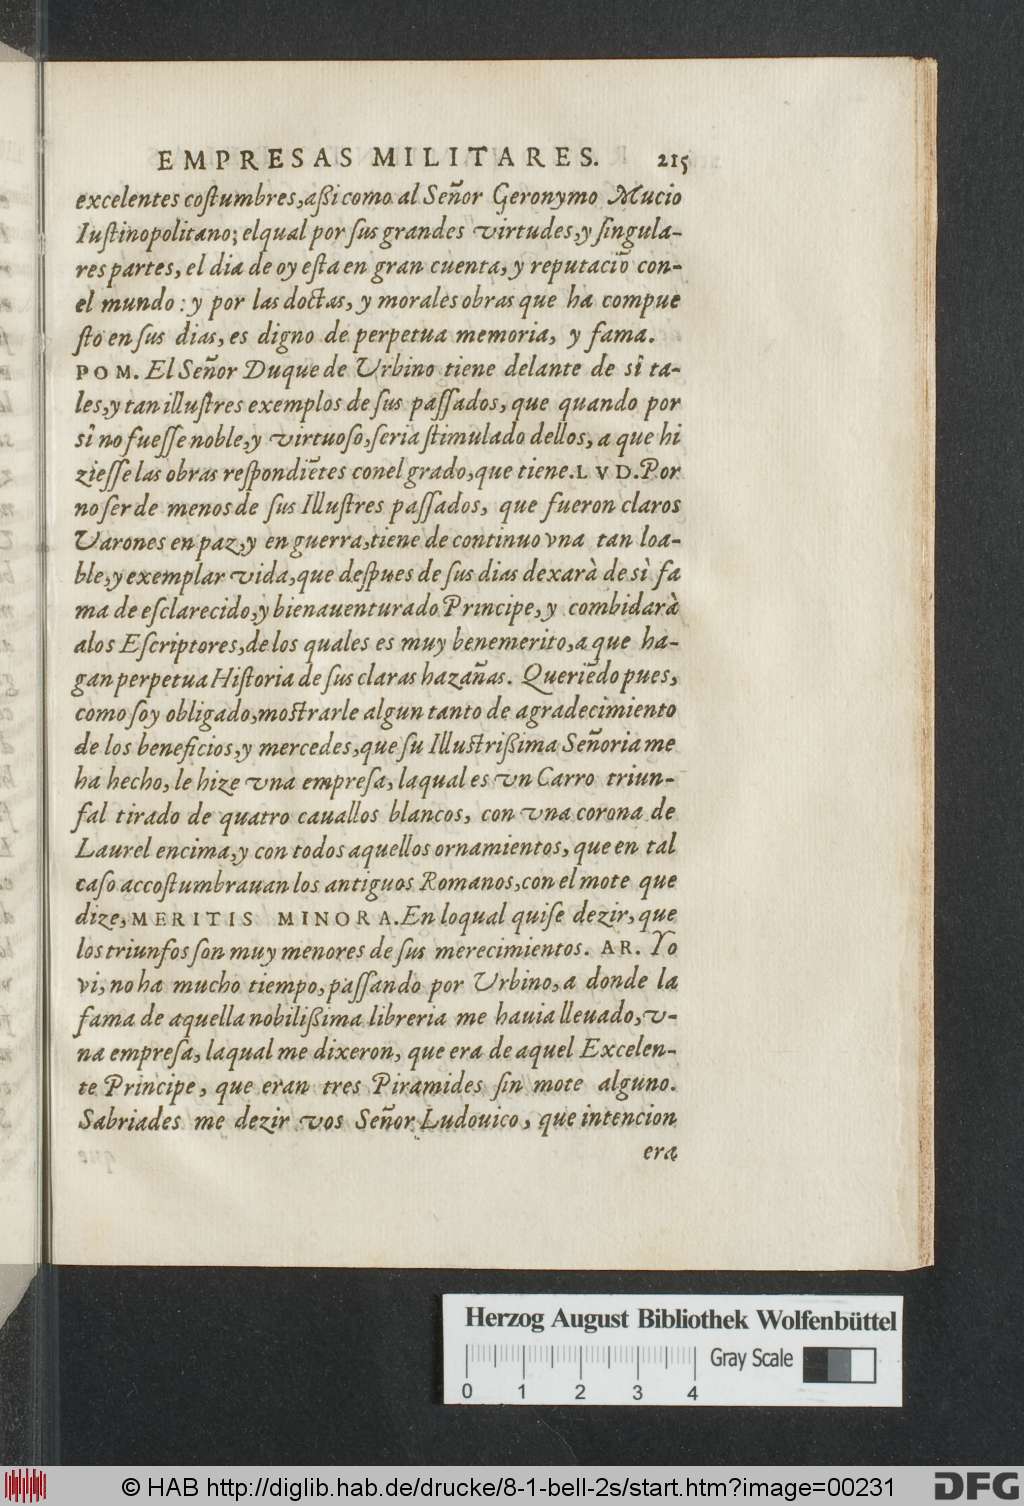 EMPRESAS MILITARES. 215
excelentes costumbres, aßi como al Señor Geronymo Mucio
Iustinopolitano; elqual por sus grandes virtudes, y singula-
res partes, el dia de oy esta en gran cuenta, y reputaciõ con-
el mundo: y por las doctas, y morales obras que ha compue
sto en sus dias, es digno de perpetua memoria, y fama.
POM. El Señor Duque de Urbino tiene delante de sî ta-
les, y tan illustres exemplos de sus passados, que quando por
sî no fuesse noble, y virtuoso, seria stimulado dellos, a que hi
ziesse las obras respondiẽtes conel grado, que tiene. LVD. Por
no ser de menos de sus Illustres passados, que fueron claros
Varones en paz, y en guerra, tiene de continuo vna tan loa-
ble, y exemplar vida, que despues de sus dias dexarà de sì fa
ma de esclarecido, y bienauenturado Principe, y combidarà
alos Escriptores, de los quales es muy benemerito, a que ha-
gan perpetua Historia de sus claras hazañas. Queriẽdo pues,
como soy obligado, mostrarle algun tanto de agradecimiento
de los beneficios, y mercedes, que su Illustrißima Señoria me
ha hecho, le hize vna empresa, laqual es vn Carro triun-
fal tirado de quatro cauallos blancos, con vna corona de
Laurel encima, y con todos aquellos ornamientos, que en tal
caso accostumbrauan los antiguos Romanos, con el mote que
dize, MERITIS MINORA. En loqual quise dezir, que
los triunfos son muy menores de sus merecimientos. AR. Yo
vi, no ha mucho tiempo, passando por Urbino, a donde la
fama de aquella nobilißima libreria me hauia lleuado, v-
na empresa, laqual me dixeron, que era de aquel Excelen-
te Principe, que eran tres Piramides sin mote alguno.
Sabriades me dezir vos Señor Ludouico, que intencion
era
Herzog August Bibliothek Wolfenbüttel
Gray Scale
0 1 2 3 4
© HAB http://diglib.hab.de/drucke/8-1-bell-2s/start.htm?image=00231
DFG